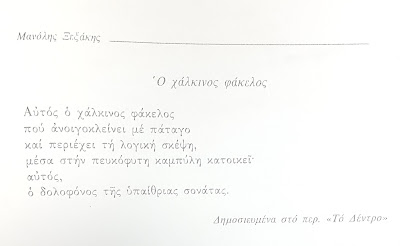 Μανόλης Ξεξάκης
Ὁ χάλκινος φάκελος
Αὐτός ὁ χάλκινος φάκελος
πού ἀνοιγοκλείνει μέ πάταγο
καί περιέχει τή λογική σκέψη,
μέσα στήν πευκόφυτη καμπύλη κατοικεῖ·
αὐτός,
ὁ δολοφόνος τῆς ὑπαίθριας σονάτας.
Δημοσιευμένα στό περ. «Τό Δέντρο»